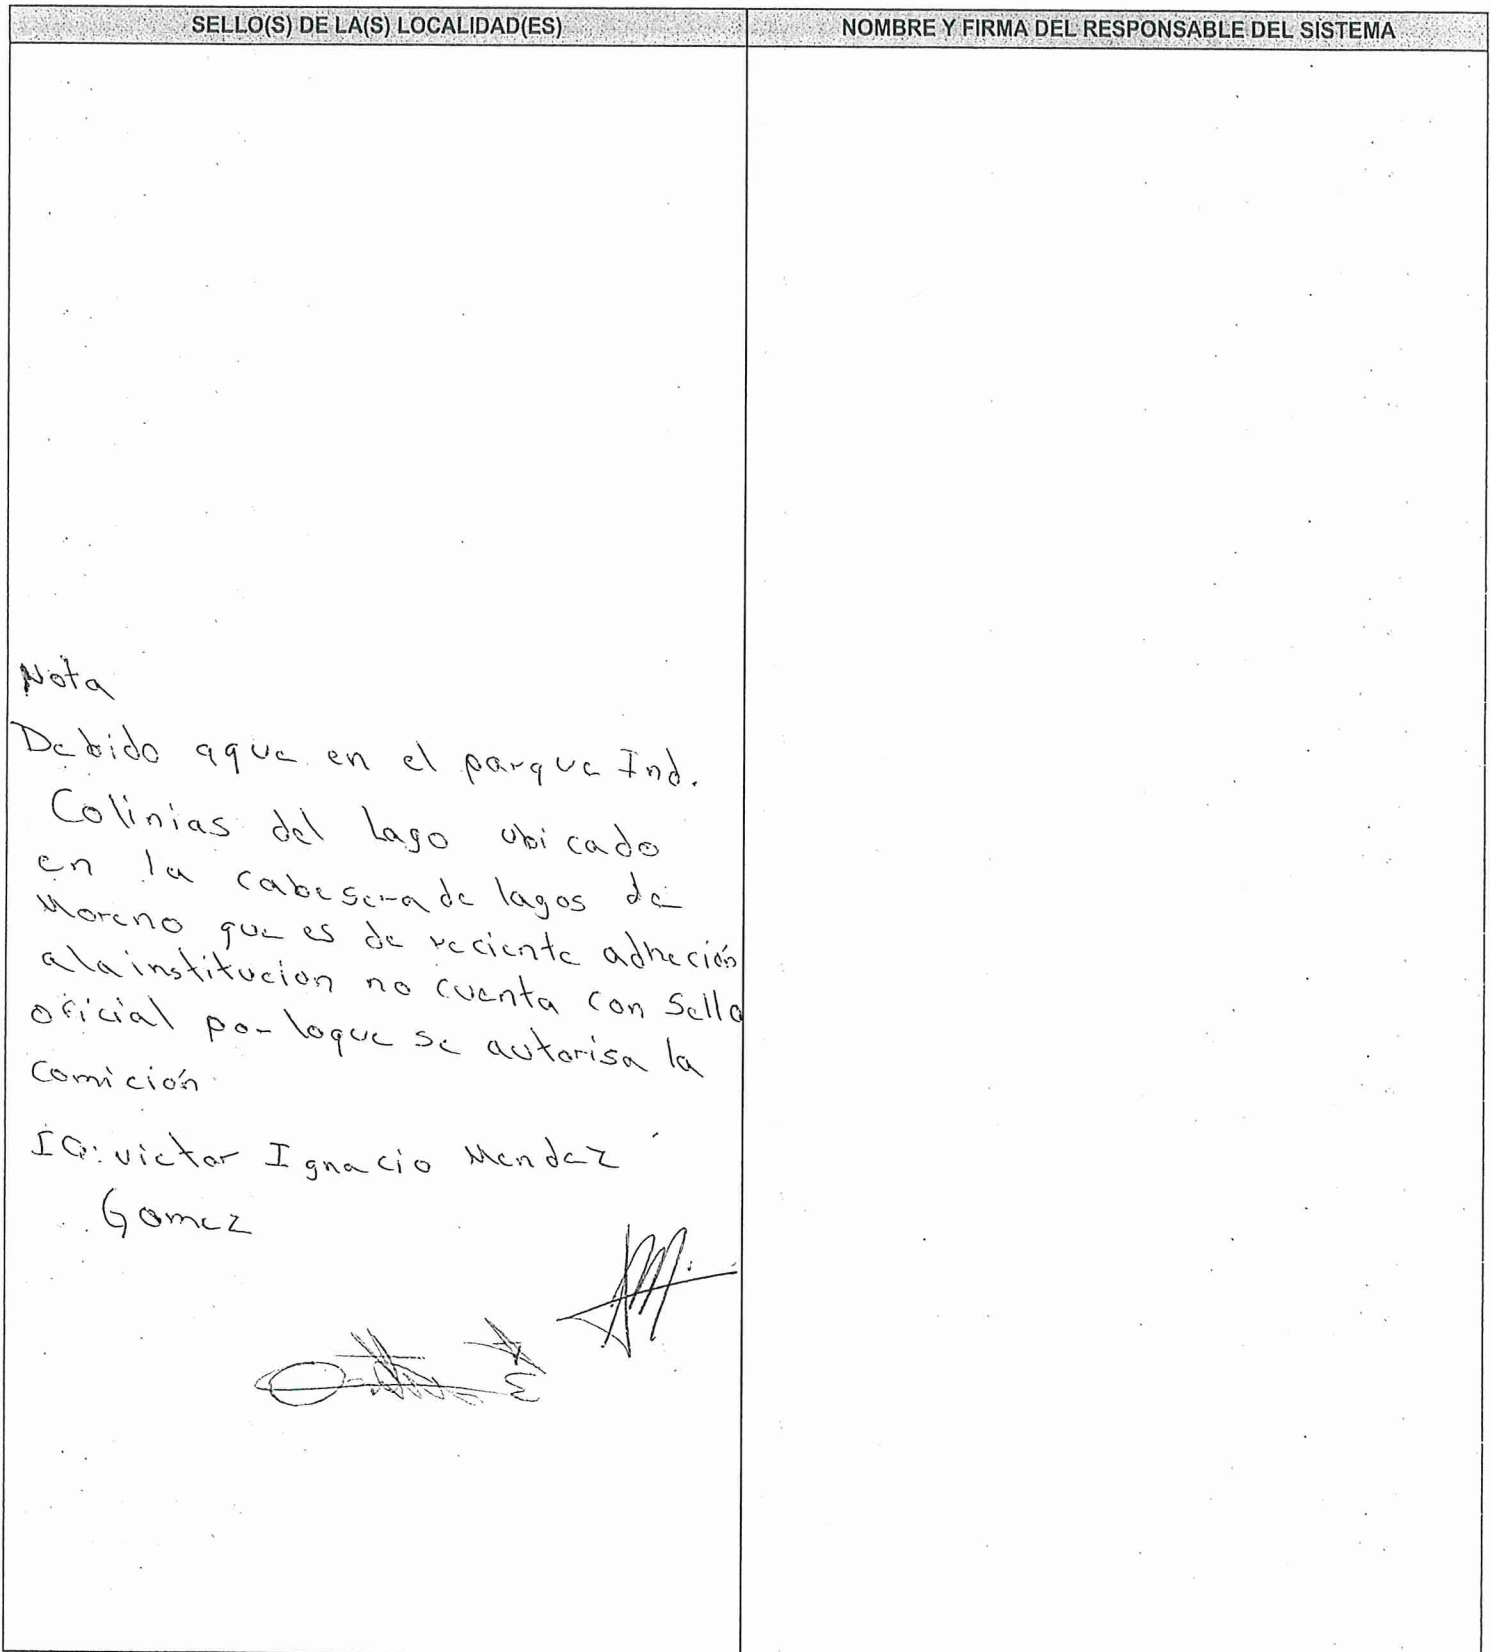 SELLO(S) DE LA(S) LOCALIDAD(ES)
NOMBRE Y FIRMA DEL RESPONSABLE DEL SISTEMA
Nota
Debido aque en el parque Ind.
Colinias del Lago ubicado
en la cabesera de lagos de
Moreno que es de reciente adheción
ala institucion no cuenta con Sello
oficial por loque se autorisa la
Comición
IQ: victor Ignacio Mendez
Gomez